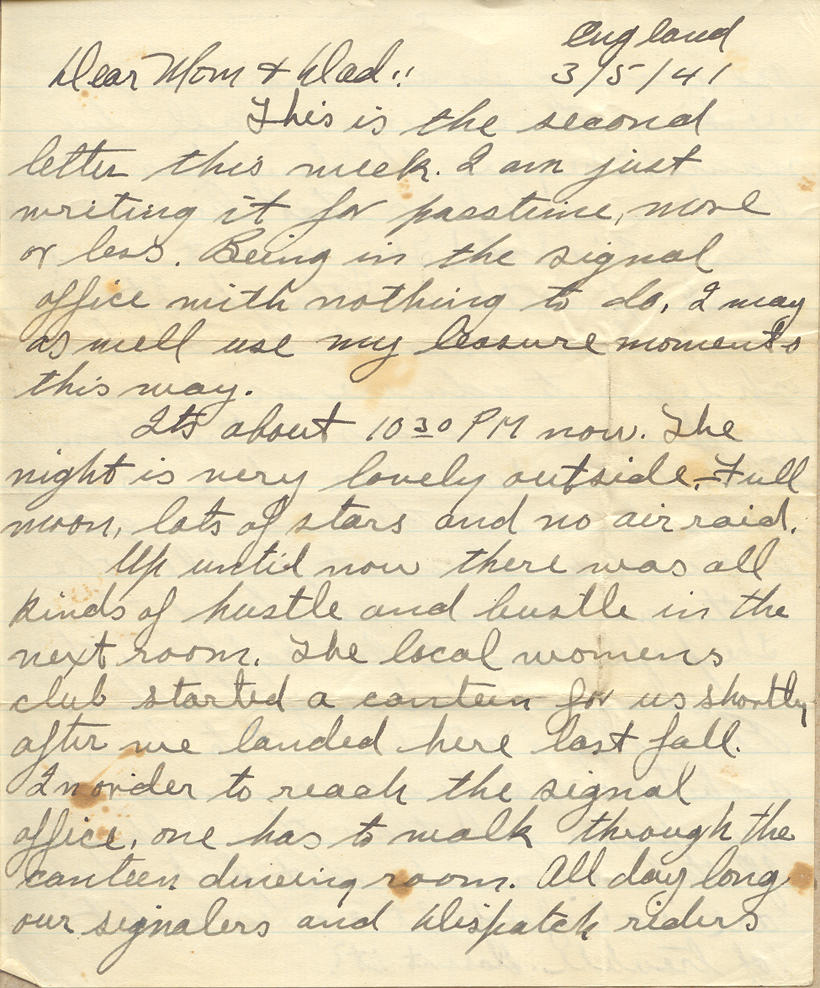 England
Dear Mom & Dad!!
3/5/41
This is the second
letter this week. I am just
writing it for passtime, more
or less. Being in the signal
office with nothing to do, I may
as well use my leasure moments
this way.
Its about 10 30 PM now. The
night is very lovely outside. - Full
moon, lots of stars and no air raid.
Up until now there was all
kinds of hustle and bustle in the
next room. The local womens
club started a canteen for us shortly
after we landed here last fall.
In order to reach the signal
office, one has to walk through the
canteen dineing room. All day long
our signalers and dispatch riders